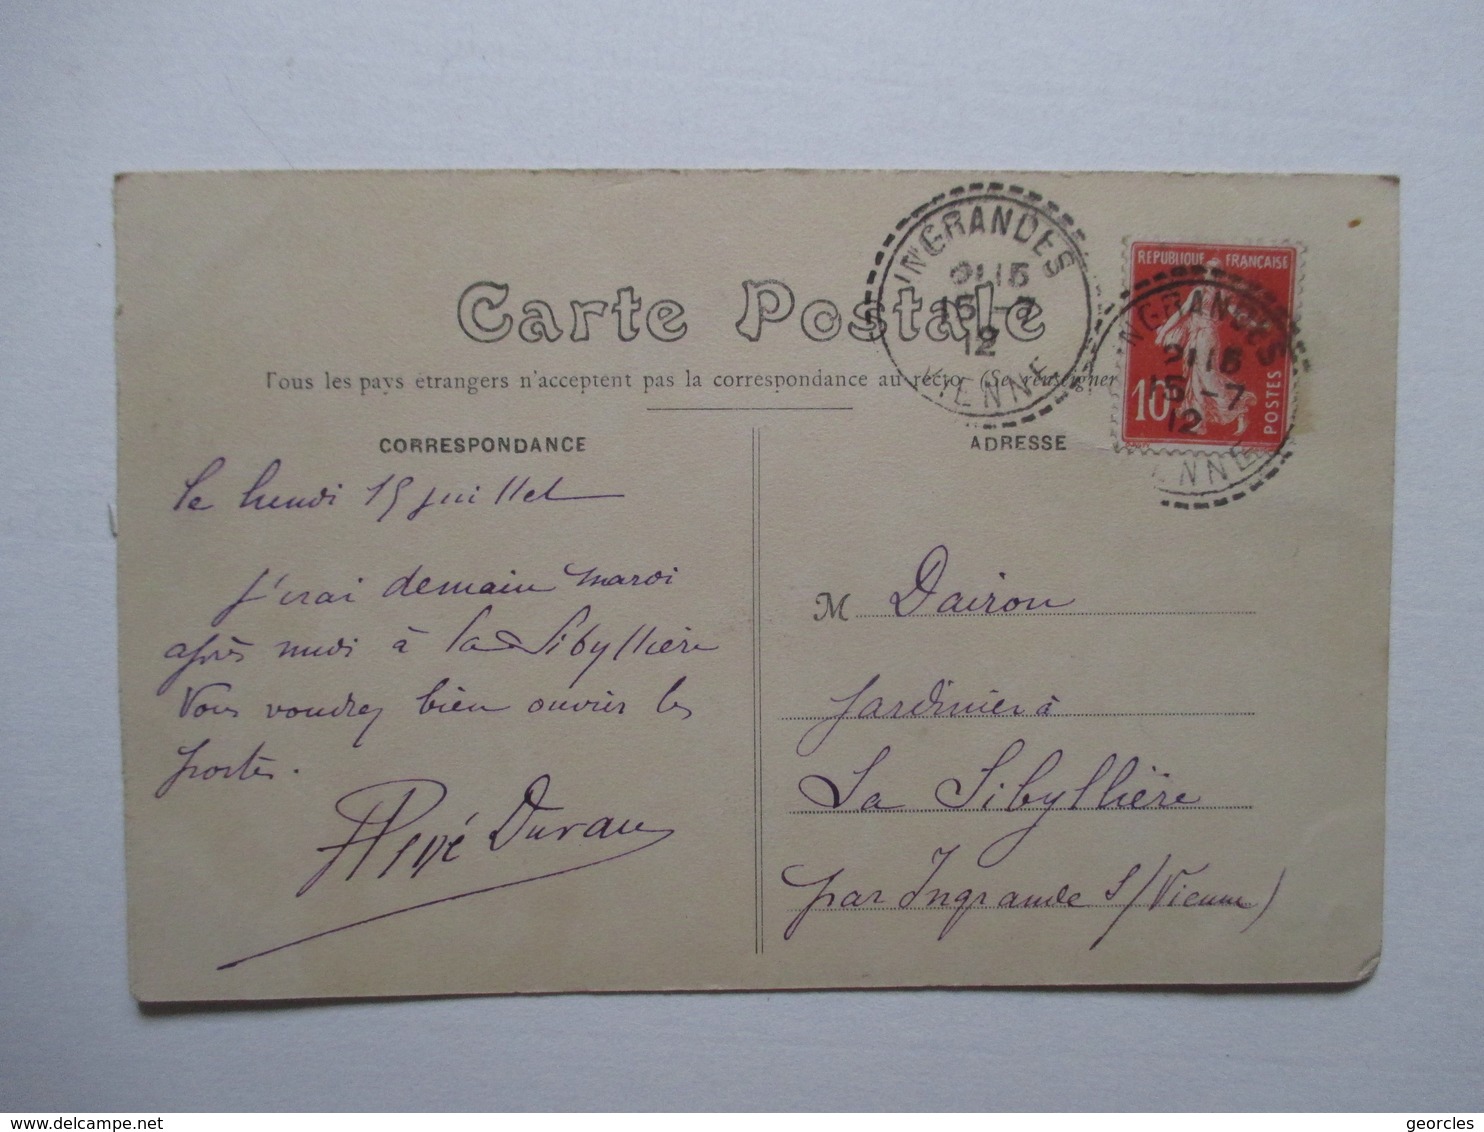 Carte Postale
Tous les pays étrangers n'acceptent pas la correspondance au recto (Se renseigner
CORRESPONDANCE
ADRESSE
INGRANDES
21 15
15 -7
12
VIENNE
REPUBLIQUE FRANÇAISE
10c
POSTES
INGRANDES
21 15
15 -7
12
VIENNE
le lundi 15 juillet
J'irai demain mardi
après midi à la Sibyllière
Vous voudrez bien ouvrir les
portes.
Duvau
M Dairon
Jardinier à
La Sibyllière
par Ingrande S/Vienne)
delcampe.net
georcles